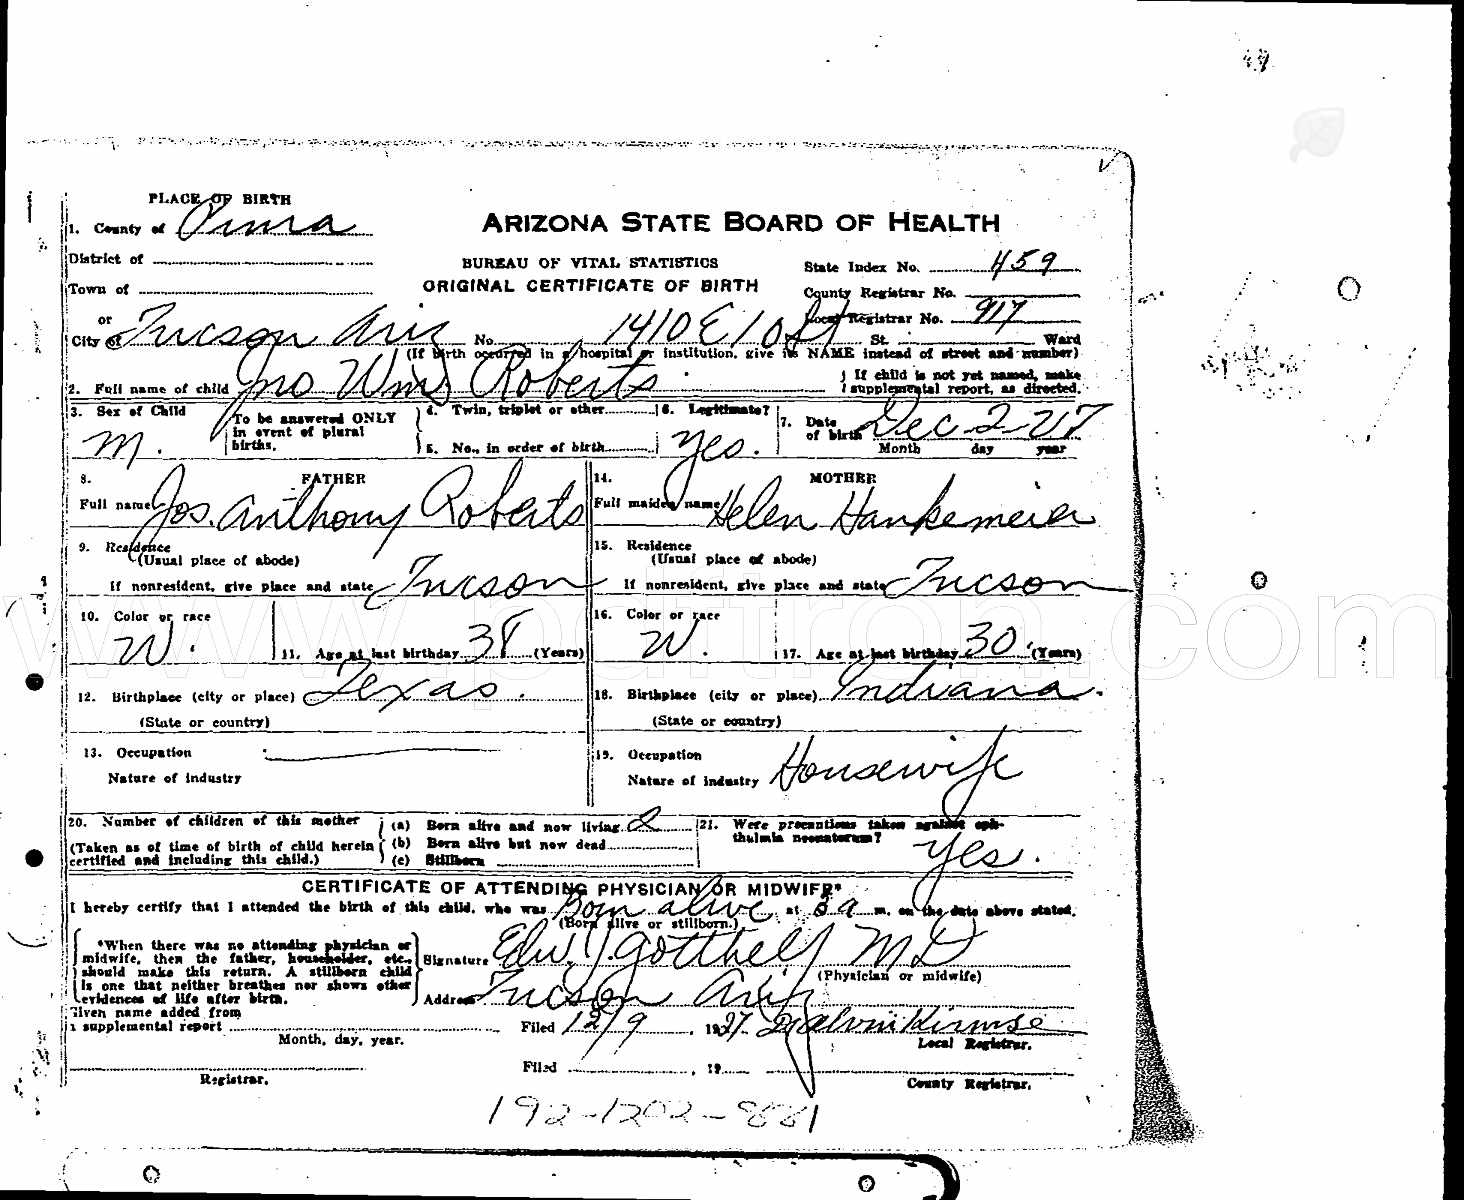 PLACE OF BIRTH
ARIZONA STATE BOARD OF HEALTH
1. County of Pima
District of
BUREAU OF VITAL STATISTICS
State Index No. 459
Town of
ORIGINAL CERTIFICATE OF BIRTH
County Registrar No.
or
Local Registrar No. 917
City of Tucson Ariz No. 1410 E 10 St St. Ward
(If birth occurred in a hospital or institution, give its NAME instead of street and number)
2. Full name of child Jno Wm Roberts
If child is not yet named, make
supplemental report, as directed.
3. Sex of Child M.
To be answered ONLY
in event of plural
births.
4. Twin, triplet or other
5. No., in order of birth
6. Legitimate? Yes.
7. Date
of birth Dec 2 - 27
Month day year
8. FATHER
Full name Jos. Anthony Roberts
14. MOTHER
Full maiden name Helen Hankemeier
9. Residence
(Usual place of abode)
If nonresident, give place and state Tucson
15. Residence
(Usual place of abode)
If nonresident, give place and state Tucson
10. Color or race W.
11. Age at last birthday 38 (Years)
16. Color or race W.
17. Age at last birthday 30 (Years)
12. Birthplace (city or place) Texas.
(State or country)
18. Birthplace (city or place) Indiana.
(State or country)
13. Occupation
Nature of industry
19. Occupation
Nature of industry Housewife
20. Number of children of this mother
(Taken as of time of birth of child herein
certified and including this child.)
(a) Born alive and now living 2
(b) Born alive but now dead
(c) Stillborn
21. Were precautions taken against oph-
thalmia neonatorum? Yes.
CERTIFICATE OF ATTENDING PHYSICIAN OR MIDWIFE*
I hereby certify that I attended the birth of this child, who was Born alive at 3 a m. on the date above stated.
(Born alive or stillborn.)
*When there was no attending physician or
midwife, then the father, householder, etc.,
should make this return. A stillborn child
is one that neither breathes nor shows other
evidences of life after birth.
Signature Edw. J. Gotthelf M D
(Physician or midwife)
Address Tucson Ariz
Given name added from
a supplemental report
Month, day, year.
Filed 12/9, 1927 Kirmse
Local Registrar.
Registrar.
Filed , 19
County Registrar.
192-1202-8881